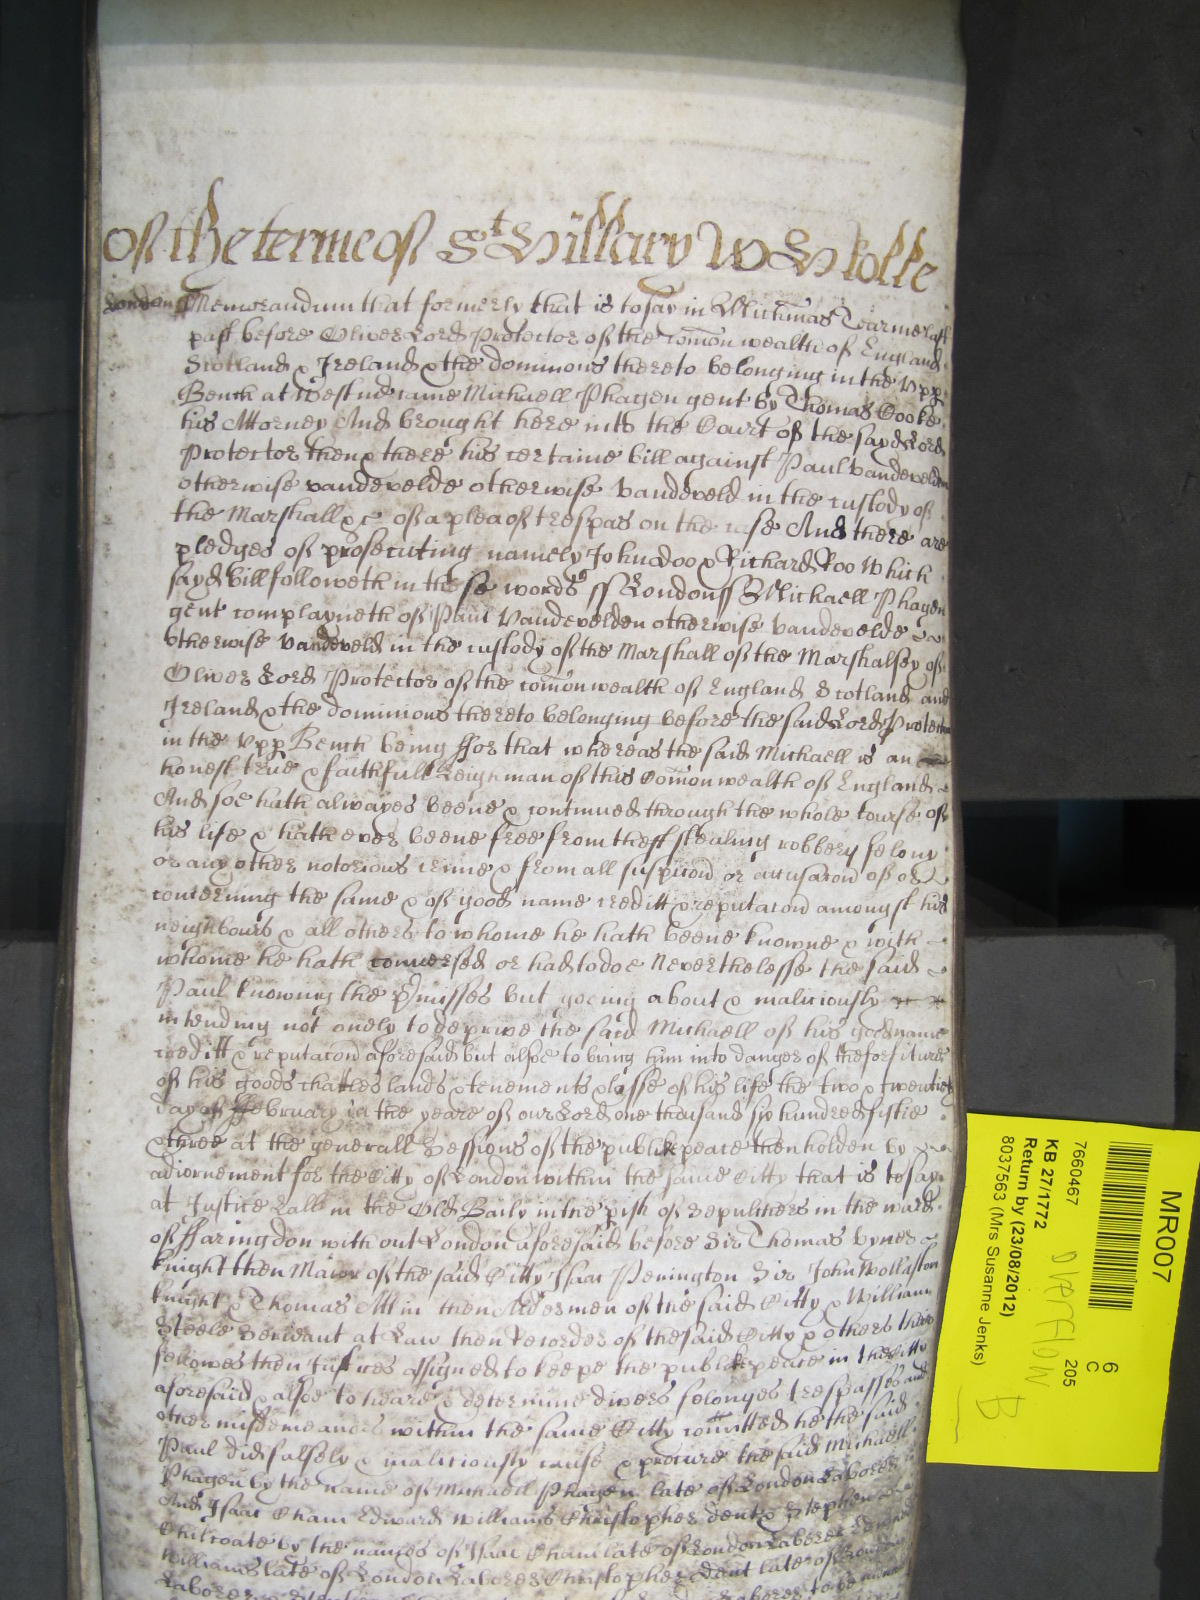 Of the terme of St Hillary Wth Rolle
London Memorandum that formerly that is to say in Michmas Tearme last
past before Oliver Lord Protector of the Comonwealth of England
Scotland & Ireland & the dominions thereto belonging in the Upp
Bench at Westmr came Michaell Phagen gent by Thomas Cooke
his Attorney And brought here into the Court of the sayd Lord
Protector then & there his certaine bill against Paul Vandevelden
otherwise vandevelde otherwise Vandeveld in the custody of
the Marshall &c of a plea of trespas on the case And there are
pledges of prosecuting namely John doo & Richard Roo Which
sayd bill followeth in these words ss London ss Michaell Phagen
gent complayneth of Paul Vandevelden otherwise vandevelde
otherwise vandeveld in the custody of the Marshall of the Marshalsey of
Oliver Lord Protector of the comonwealth of England Scotland and
Ireland & the dominions thereto belonging before the said Lord Protector
in the Upp Bench being ffor that whereas the said Michaell is an
honest true & faithfull Leigman of this Comonwealth of England
And soe hath alwayes beene & continued through the whole course of
his life & hath ever beene free from theft stealing robbery felony
or any other notorious crime & from all suspicion or accusacon of or
concerning the same & of good name creditt & reputacon amongst his
neighbours & all others to whome he hath beene knowne & with
whome he hath conversed or had to doe Neverthelesse the said
Paul knowing the pmisses but goeing about & maliciously
intending not onely to deprive the said Michaell of his good name
creditt & reputacon aforesaid but alsoe to bring him into danger of the forfiture
of his goods chattles lands & tenements & losse of his life the two & twentieth
day of ffebruary in the yeare of our Lord one thousand six hundred fiftie
& three at the generall Sessions of the publike peace then holden by
adiornement for the Citty of London within the same Citty that is to say
at Justice Hall in the Old Baily in the pish of Sepulchers in the ward
of ffaringdon without London aforesaid before Sir Thomas Vyner
knight then Maior of the said Citty Isaac Penington Sir John Wollaston
knight & Thomas Atkin then Aldermen of the said Citty & William
Steele Serieant at Law then Recorder of the said Citty & others their
fellowes then Justices assigned to keepe the publike peace in the Citty
aforesaid & alsoe to heare & determine divers felonyes trespasses and
other misdemeanors within the same Citty comitted he the said
Paul did falsely & maliciously cause & procure the said Michaell
Phagen by the name of Michaell Phagen late of London Laborer
And Isaac Cham Edward Williams Christopher dent & Stephen
Chilcoate by the names of Isaac Cham late of London Laborer Edward
Williams late of London Laborer Christopher dent late of London
Laborer
MR007
6
C
205
7660467
KB 27/1772
Return by (23/08/2012)
8037563 (Mrs Susanne Jenks)
OVERFLOW
B